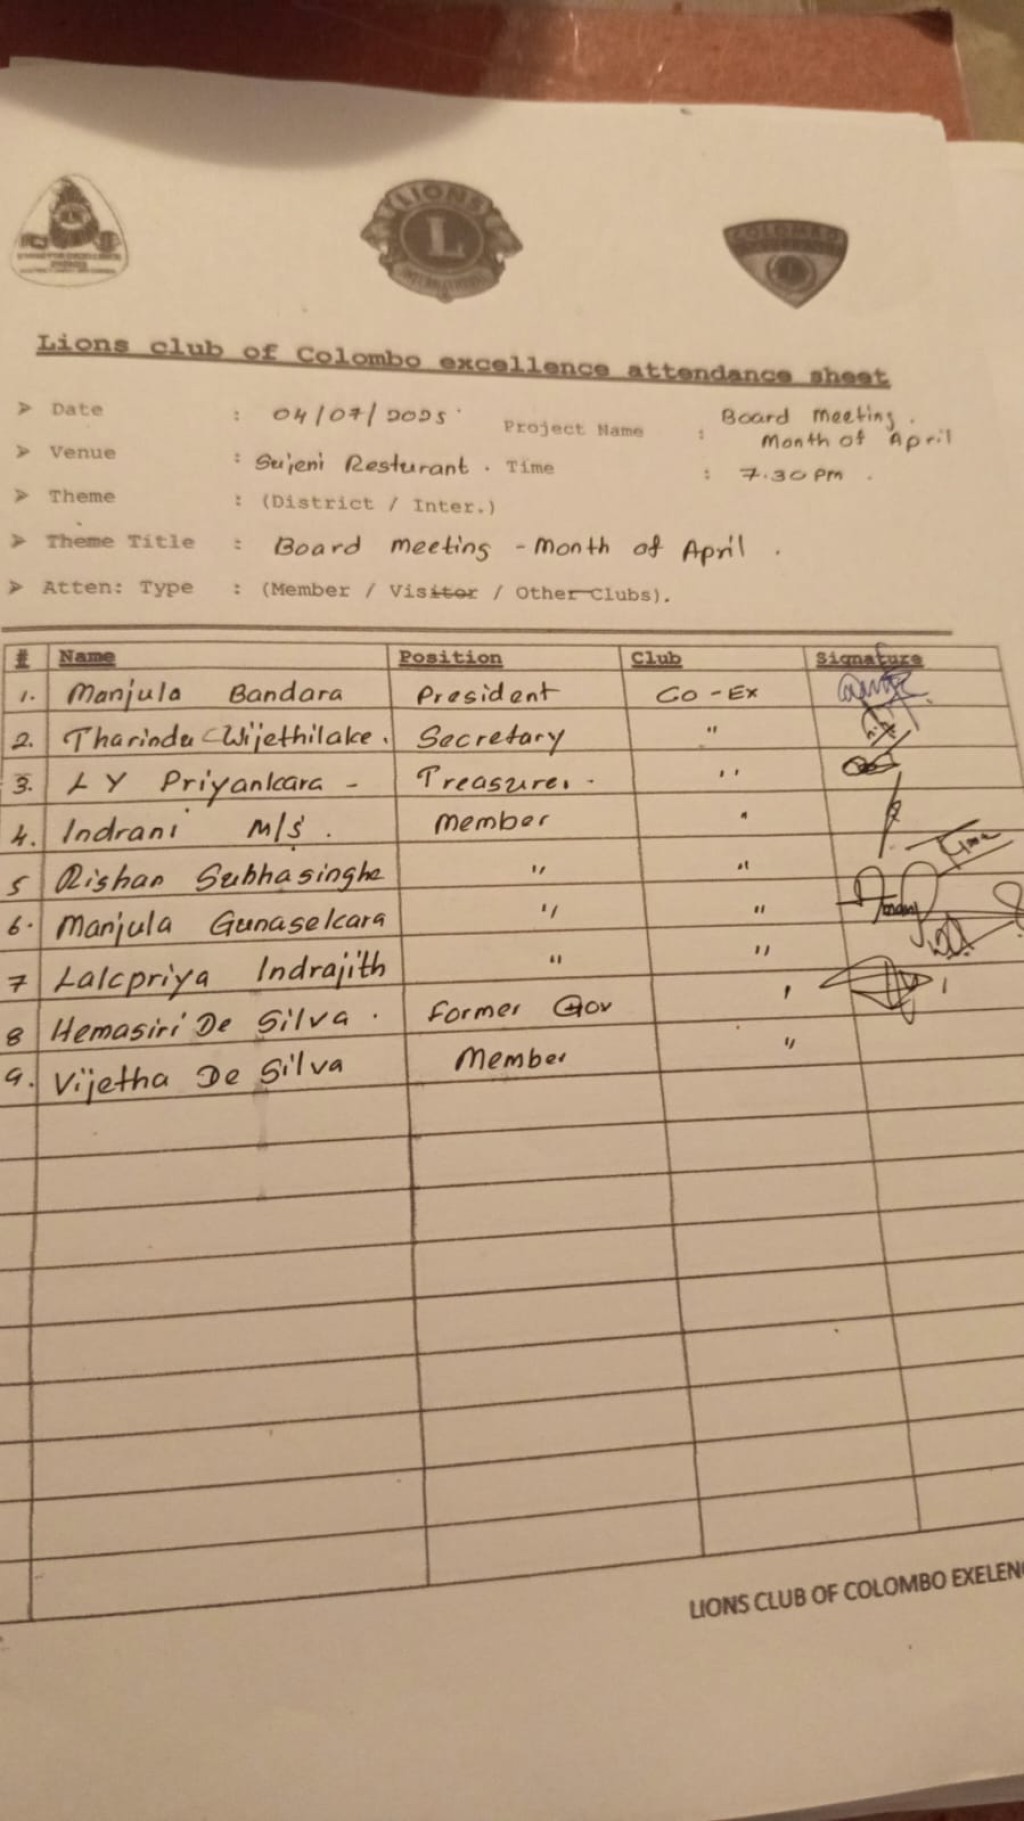 LIONS
L
INTERNATIONAL
COLOMBO
Lions club of Colombo excellence attendance sheet
➢ Date : 04/07/2025 Project Name : Board meeting. Month of April
➢ Venue : Sujeni Resturant. Time : 7.30 pm.
➢ Theme : (District / Inter.)
➢ Theme Title : Board meeting - Month of April.
➢ Atten: Type : (Member / Visitor / Other Clubs).
# Name Position Club Signature
1. Manjula Bandara President Co-Ex
2. Tharindu Wijethilake. Secretary "
3. L Y Priyankara - Treasurer. "
4. Indrani M/S. Member "
5 Rishan Subhasinghe " "
6. Manjula Gunasekara " "
7 Lalcpriya Indrajith " "
8 Hemasiri De Silva. Former Gov "
9. Vijetha De Silva Member "
LIONS CLUB OF COLOMBO EXELENC